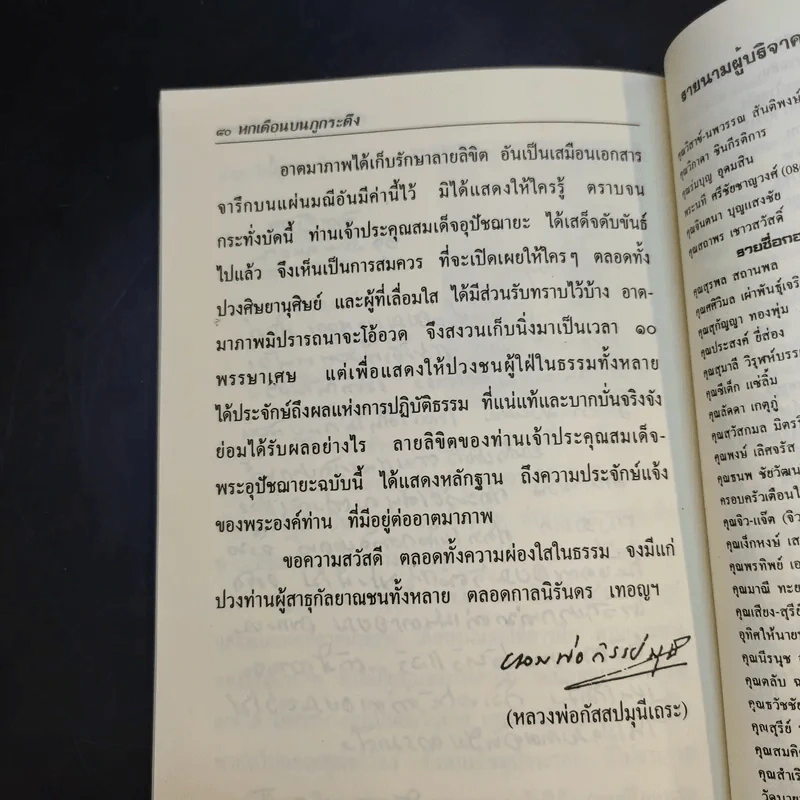 ๘๐ หกเดือนบนภูกระดึง
อาตมาภาพได้เก็บรักษาลายลิขิต อันเป็นเสมือนเอกสาร
จารึกบนแผ่นมณีอันมีค่านี้ไว้ มิได้แสดงให้ใครรู้ ตราบจน
กระทั่งบัดนี้ ท่านเจ้าประคุณสมเด็จอุปัชฌายะ ได้เสด็จดับขันธ์
ไปแล้ว จึงเห็นเป็นการสมควร ที่จะเปิดเผยให้ใครๆ ตลอดทั้ง
ปวงศิษยานุศิษย์ และผู้ที่เลื่อมใส ได้มีส่วนรับทราบไว้บ้าง อาต-
มาภาพมิปรารถนาจะโอ้อวด จึงสงวนเก็บนิ่งมาเป็นเวลา ๑๐
พรรษาเศษ แต่เพื่อแสดงให้ปวงชนผู้ใฝ่ในธรรมทั้งหลาย
ได้ประจักษ์ถึงผลแห่งการปฏิบัติธรรม ที่แน่แท้และบากบั่นจริงจัง
ย่อมได้รับผลอย่างไร ลายลิขิตของท่านเจ้าประคุณสมเด็จ-
พระอุปัชฌายะฉบับนี้ ได้แสดงหลักฐาน ถึงความประจักษ์แจ้ง
ของพระองค์ท่าน ที่มีอยู่ต่ออาตมาภาพ
ขอความสวัสดี ตลอดทั้งความผ่องใสในธรรม จงมีแก่
ปวงท่านผู้สาธุกัลยาณชนทั้งหลาย ตลอดกาลนิรันดร เทอญฯ
(หลวงพ่อกัสสปมุนีเถระ)
รายนามผู้บริจาค
คุณวิสาข์-นพวรรณ สันติพงษ์
คุณวิภาดา ชินกีรติการ
คุณร่มบุญ อุดมสิน
พระนที ศรีชัยชาญวงศ์ (08
คุณจินตนา บุญแสงชัย
คุณสถาพร เชาวสวัสดิ์
รายชื่อกอ
คุณสุรพล สถานพล
คุณศศิวิมล เผ่าพันธุ์เจริ
คุณสุกัญญา ทองพุ่ม
คุณประสงค์ ยี่ส่อง
คุณสุมาลี วิรุฬห์บรร
คุณซีเต็ก แซ่ลิ้ม
คุณลัดดา เกตุภู่
คุณสวัสกมล มิตรวิ
คุณพงษ์ เลิศจรัส
คุณธนพ ชัยวัฒน
ครอบครัวเตือนใ
คุณจิว-แจ๊ต (จิว
คุณเง็กหงษ์ เส
คุณพรทิพย์ เอ
คุณมาณี ทะย
คุณเสียง-สุรีย์
อุทิศให้นายฯ
คุณนีรนุช
คุณตลับ ฉ
คุณธวัชชัย
คุณสุรีย์
คุณสมคิ
คุณสำเริ
วัดนาย